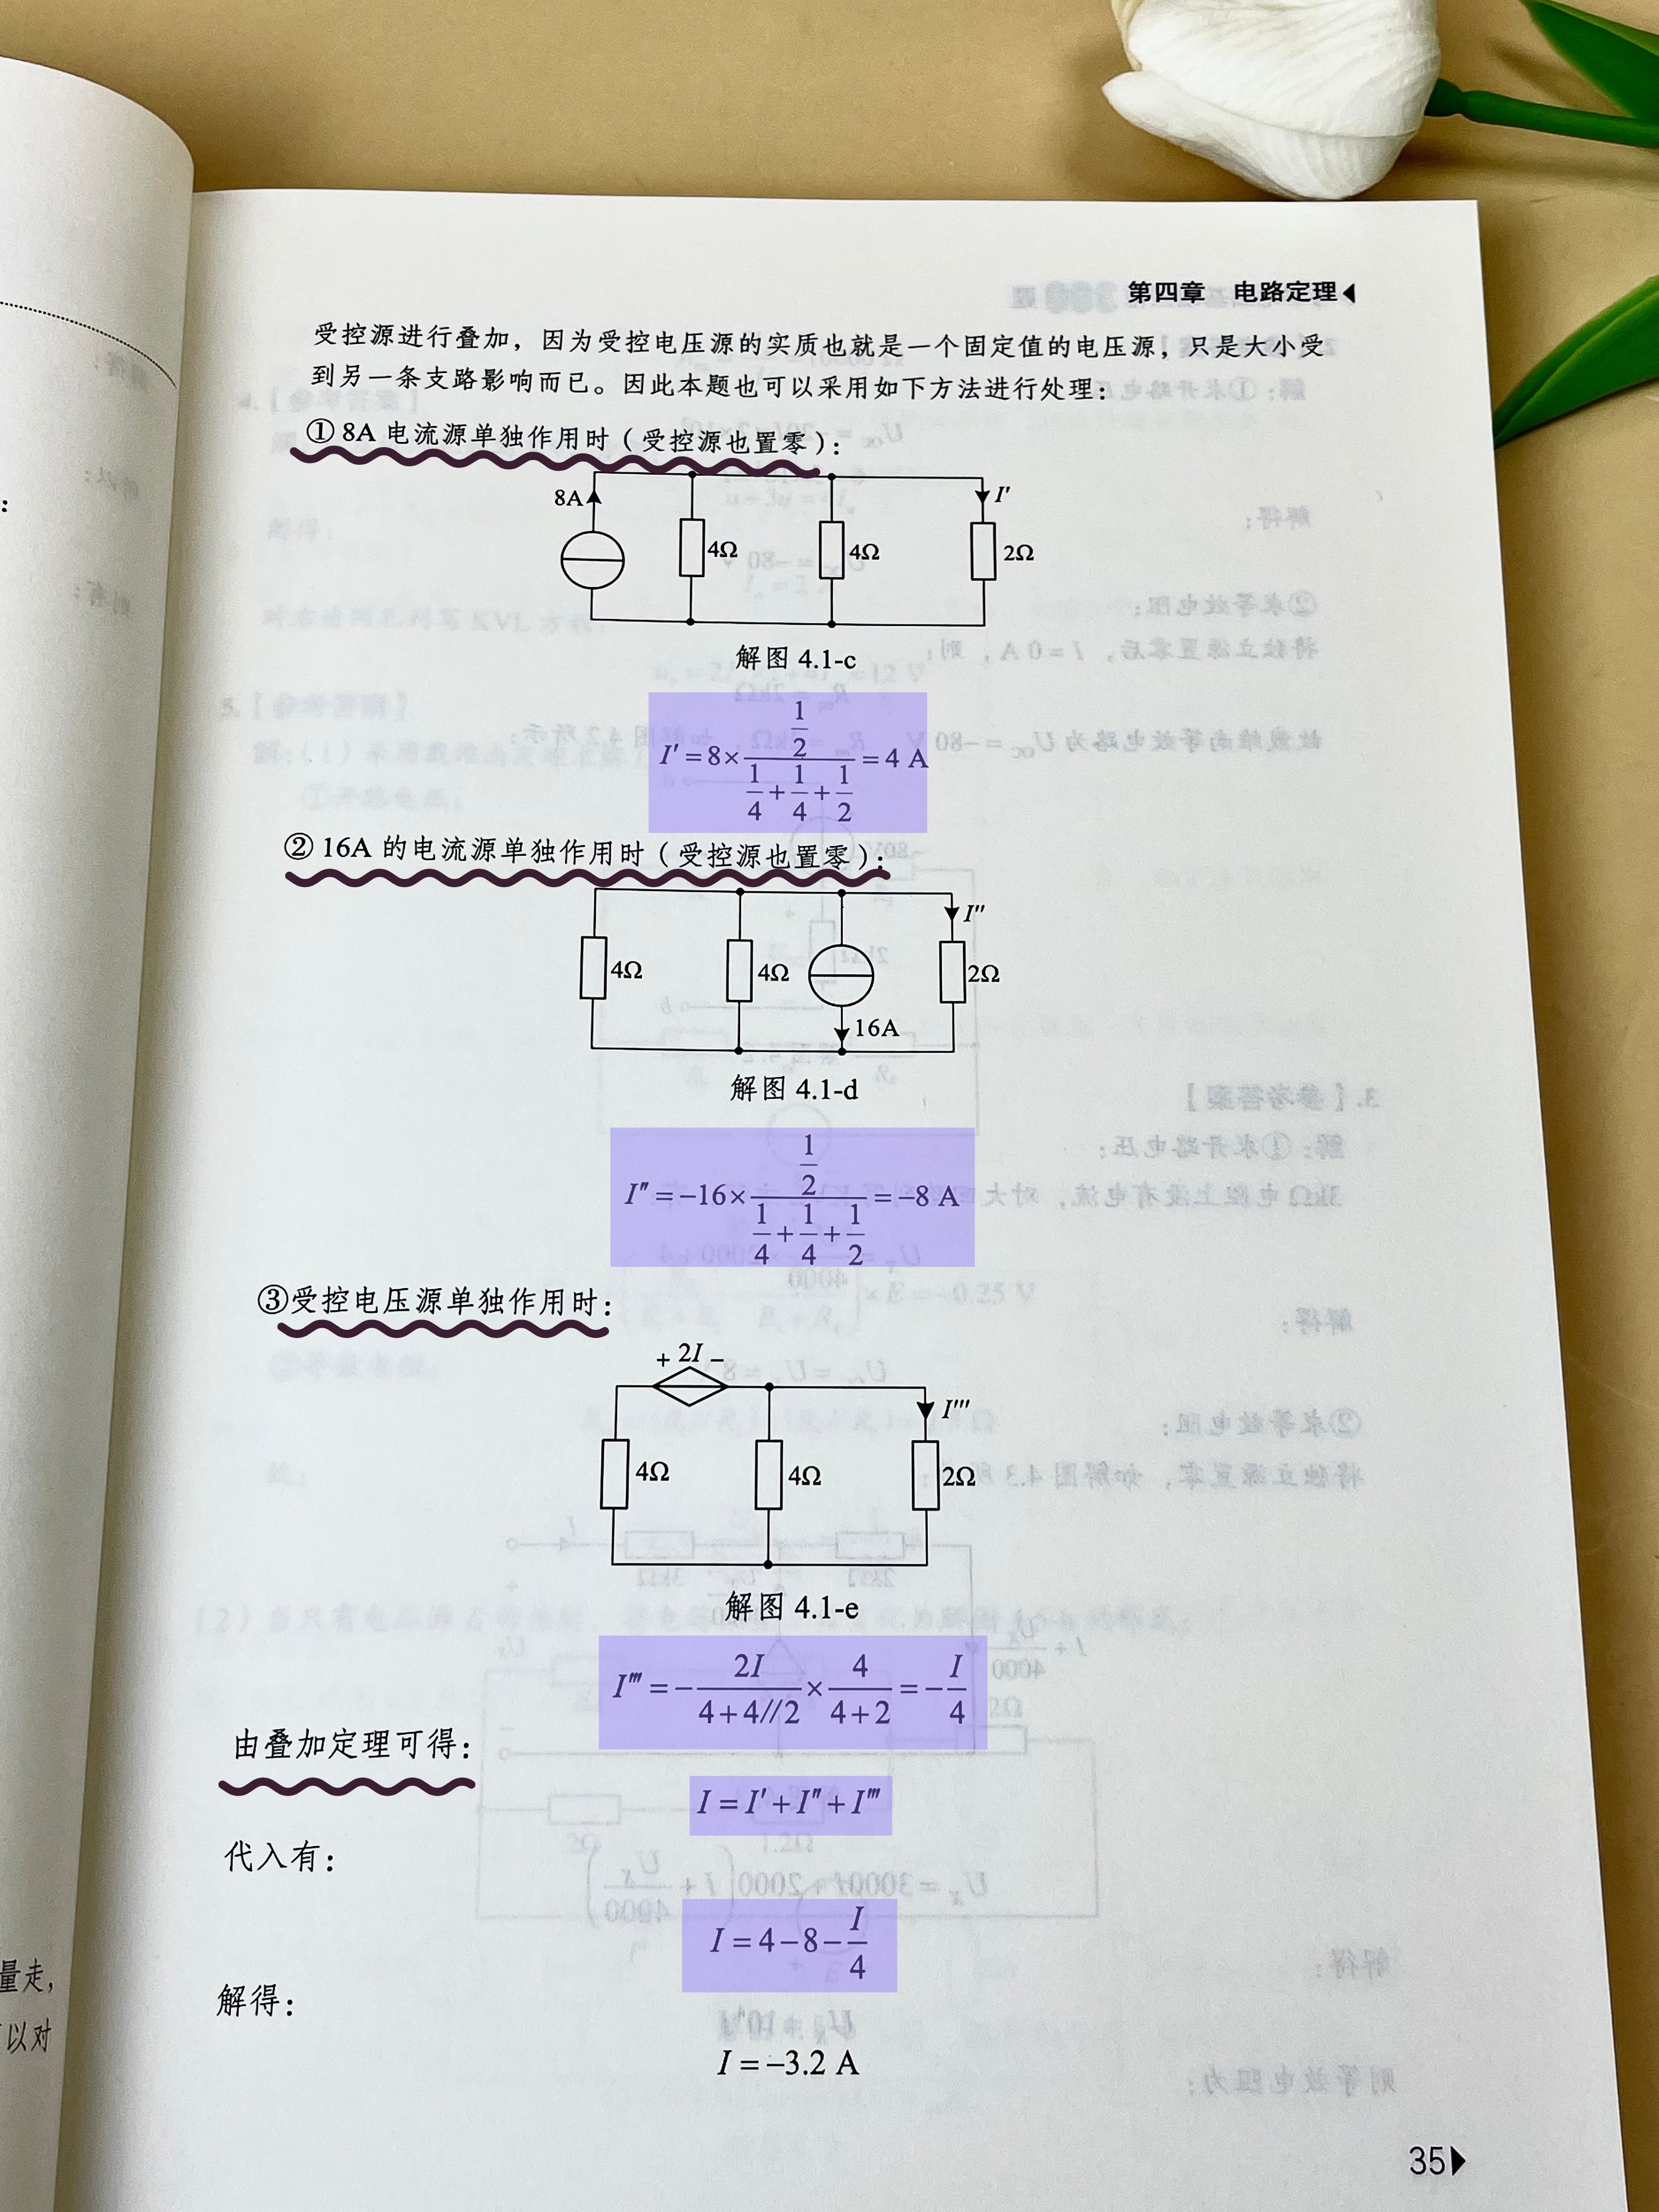 第四章 电路定理
受控源进行叠加，因为受控电压源的实质也就是一个固定值的电压源，只是大小受
到另一条支路影响而已。因此本题也可以采用如下方法进行处理：
① 8A 电流源单独作用时（受控源也置零）：
8A
I′
4Ω 4Ω 2Ω
解图 4.1-c
I′ = 8× (1/2)/(1/4+1/4+1/2) = 4 A
② 16A 的电流源单独作用时（受控源也置零）：
I″
4Ω 4Ω 2Ω
16A
解图 4.1-d
I″ = −16× (1/2)/(1/4+1/4+1/2) = −8 A
③受控电压源单独作用时：
+ 2I −
I‴
4Ω 4Ω 2Ω
解图 4.1-e
I‴ = − 2I/(4+4//2) × 4/(4+2) = − I/4
由叠加定理可得：
I = I′ + I″ + I‴
代入有：
I = 4−8− I/4
解得：
I = −3.2 A
量走，
以对
35